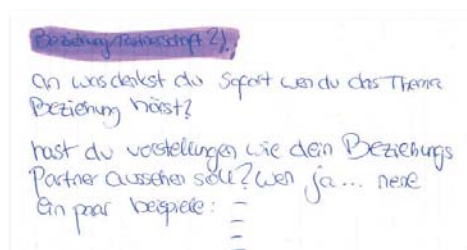 Beziehung/Partnerschaft 2).
an was denkst du sofort wen du das Thema
Beziehung hörst?
hast du vorstellungen wie dein Beziehungs
Partner aussehen soll? wen ja... nene
ein paar beispiele: -
-
-
-